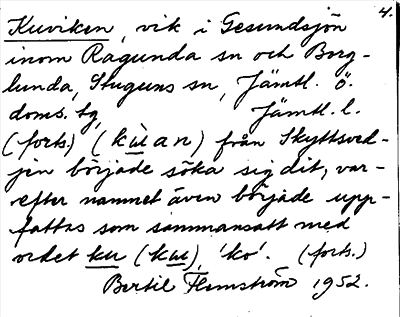 4.
Kuviken, vik i Gesundsjön
inom Ragunda sn och Borg-
lunda, Stuguns sn, Jämtl. ö.
doms. tg, Jämtl. l.
(forts.) (kùan) från Skyttsved-
jin började söka sig dit, var-
efter namnet även började upp-
fattas som sammansatt med
ordet ku (ku), 'ko'. (forts.)
Bertil Flemström 1952.